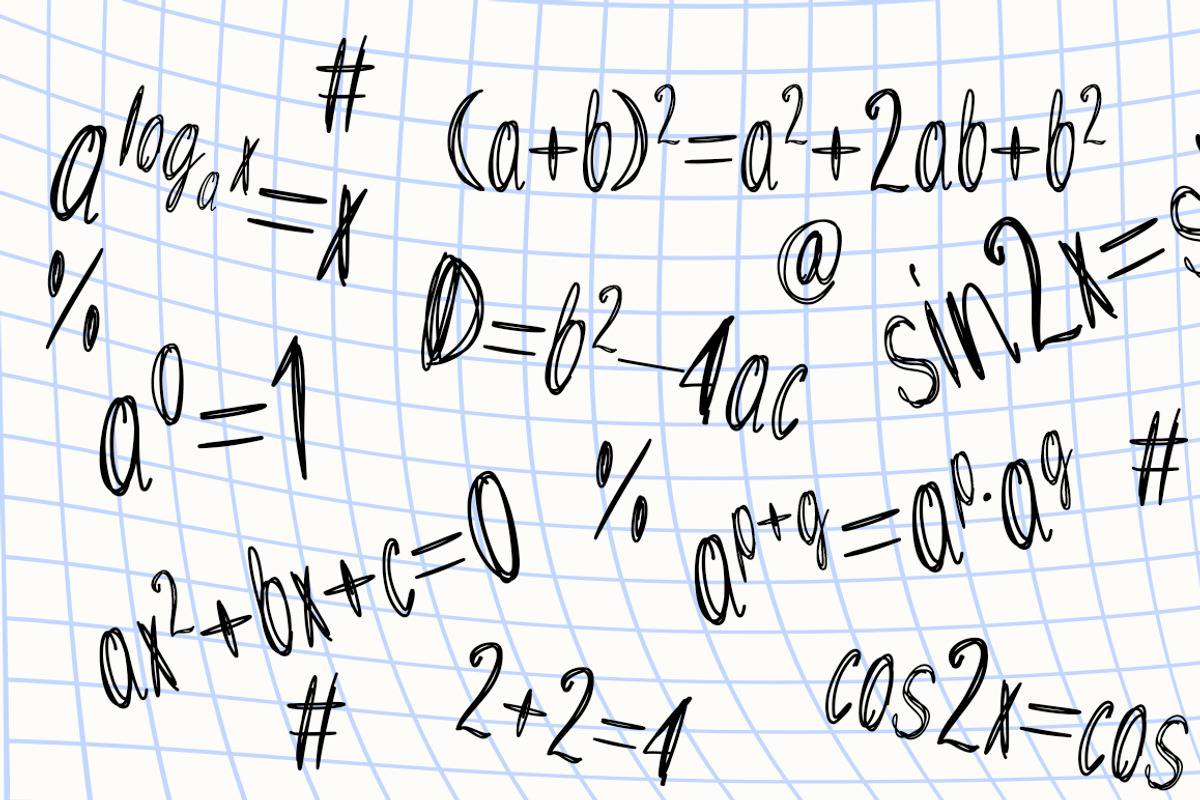 #
a^(log_a x) = x
(a+b)² = a² + 2ab + b²
%
@
D = b² - 4ac
sin2x = s
a⁰ = 1
%
#
a^(p+q) = a^p · a^q
ax² + bx + c = 0
#
2+2=4
cos2x = cos